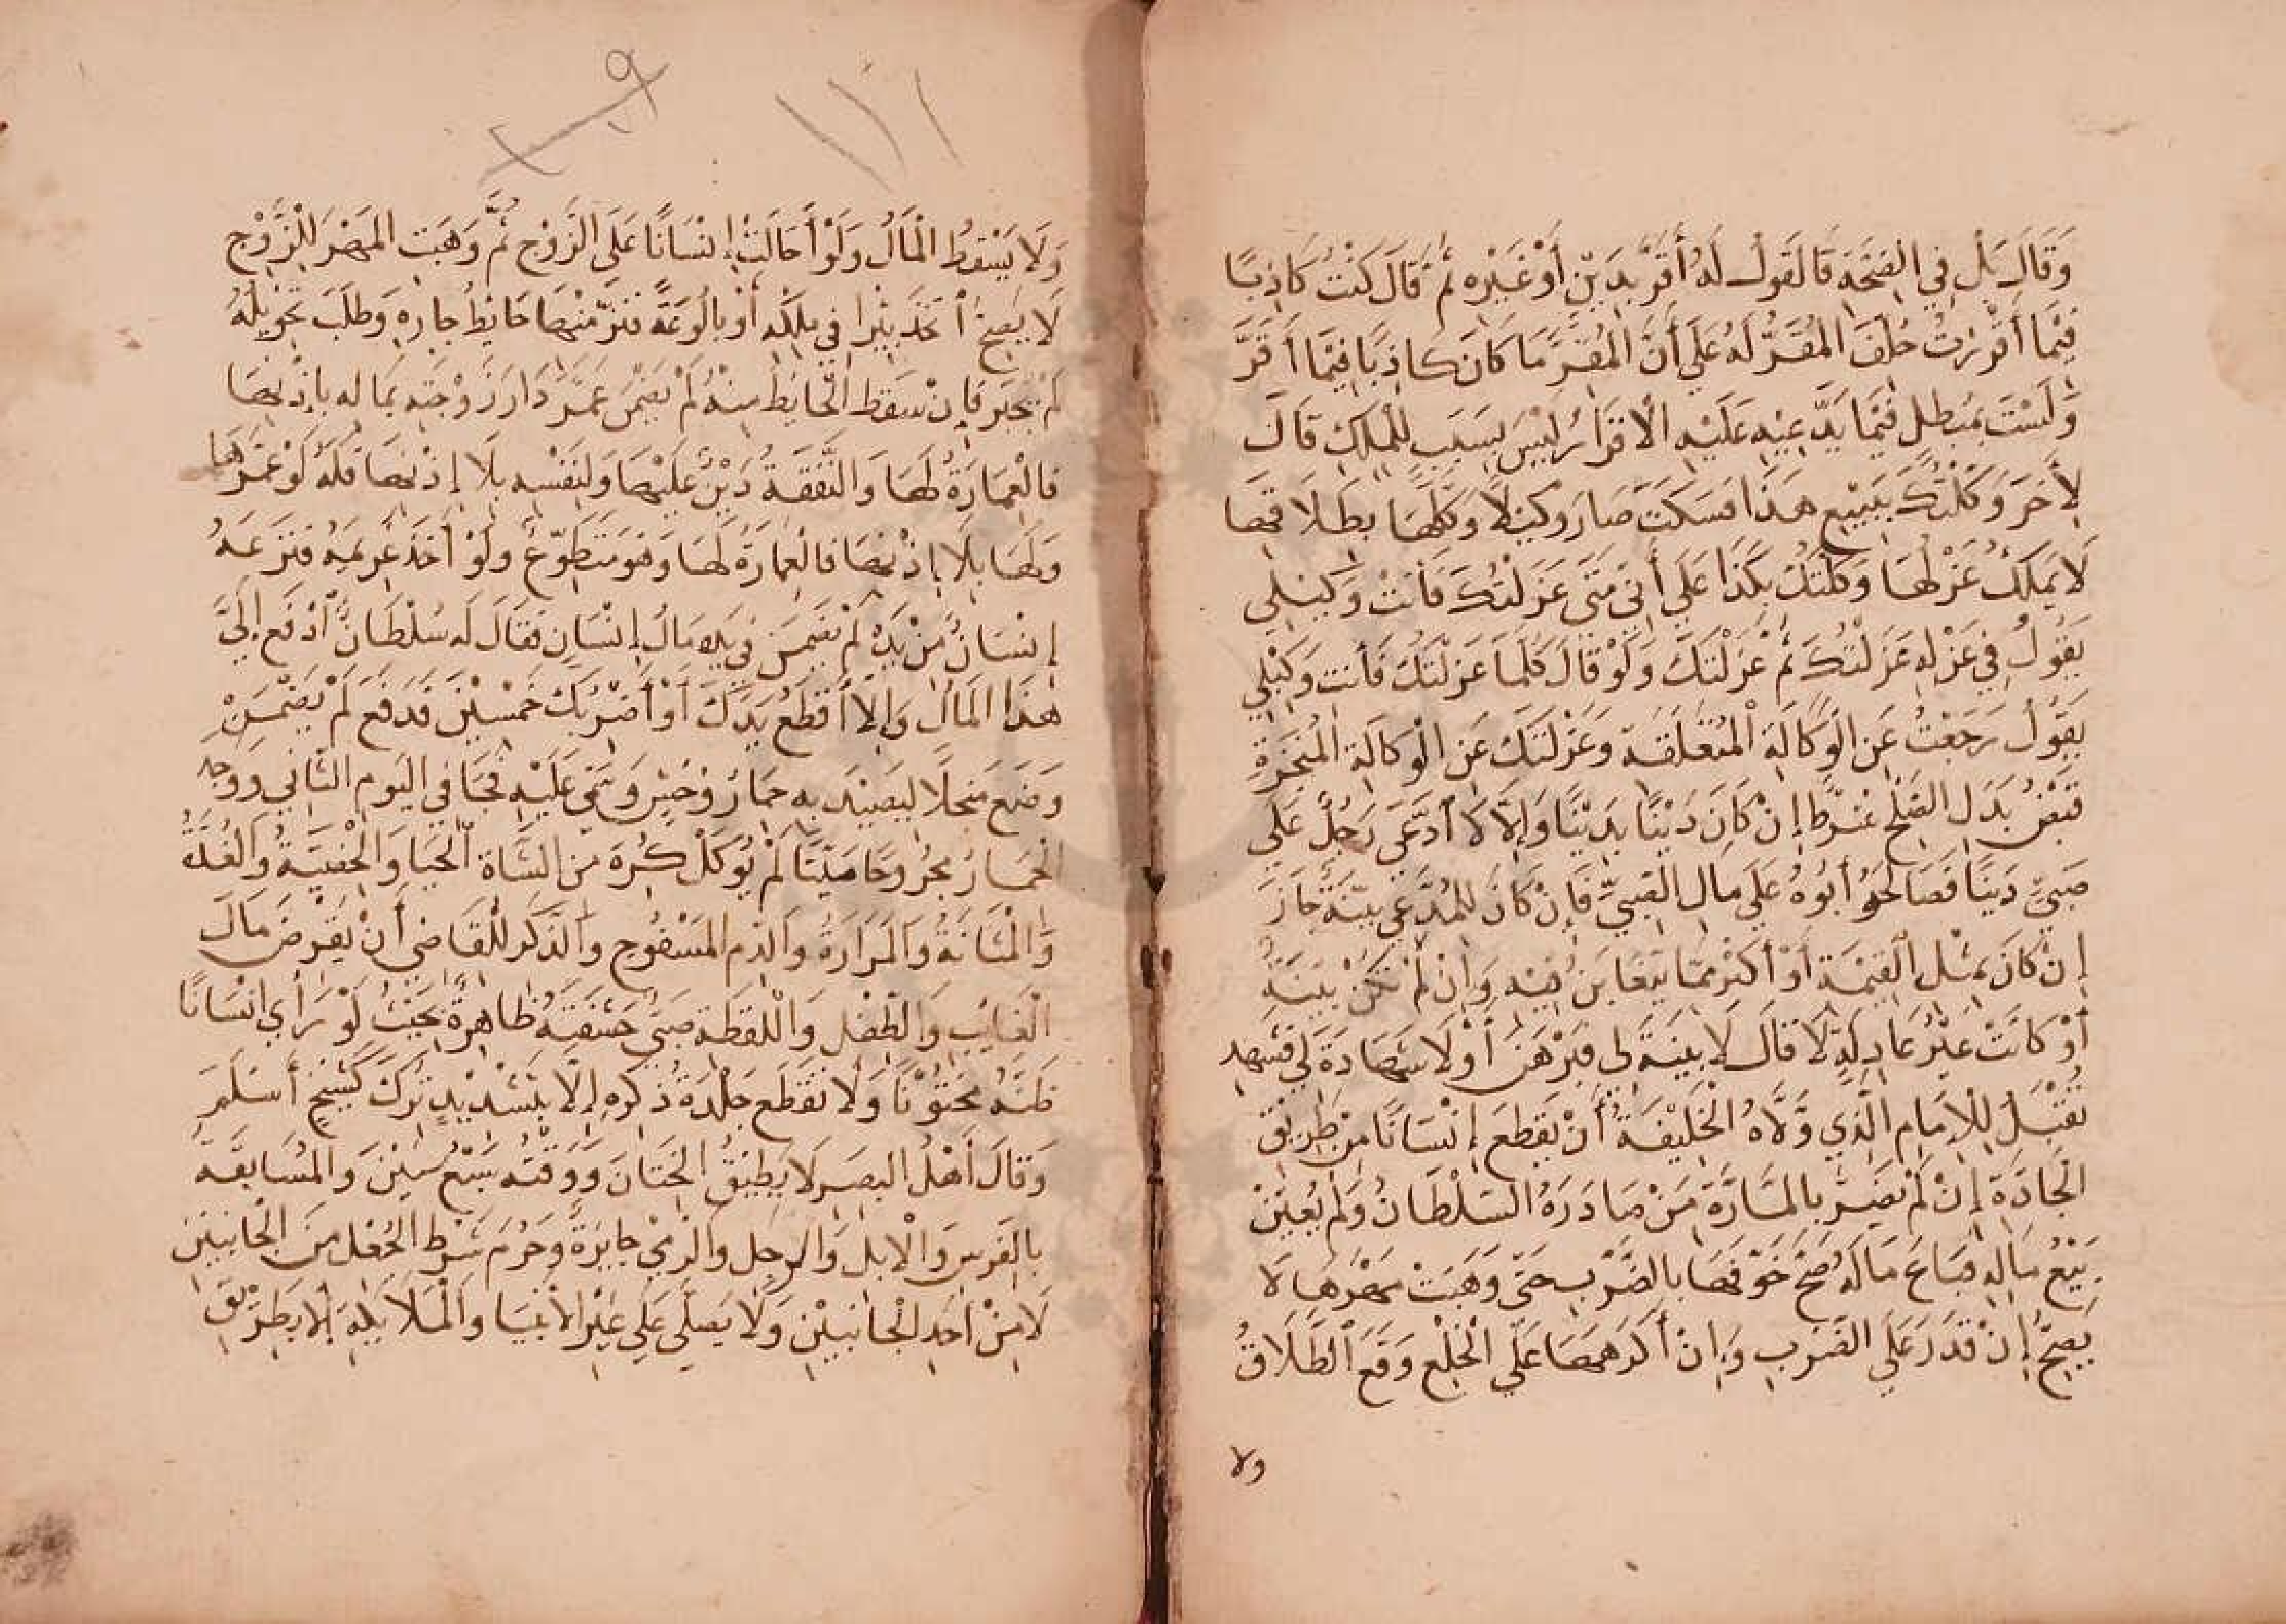 وَقَالَ بَلْ فِي الصِّحَّةِ فَالقَولُ لَهُ أَقَرَّ بِدَيْنٍ أَوْ غَيْرِهِ ثُمَّ قَالَ كُنْتُ كَاذِبًا
فِيْمَا أَقْرَرْتُ حُلِّفَ المُقَرُّ لَهُ عَلَى أَنَّ المُقِرَّ مَا كَانَ كَاذِبًا فِيْمَا أَقَرَّ
وَلَسْتَ بِمُبْطِلٍ فِيْمَا يَدَّعِيْهِ عَلَيْهِ الاقْرَارُ لَيْسَ بِسَبَبٍ لِلْمِلْكِ قَالَ
لِأَخَرَ وَكَّلْتُكَ بِبَيْعِ هَذَا فَسَكَتَ صَارَ وَكِيْلًا وَكَّلَهَا بِطَلَاقِهَا
لَا يَمْلِكُ عَزْلَهَا وَكَّلْتُكَ بِكَذَا عَلَى أَنِّي مَتَى عَزَلْتُكَ فَأَنْتَ وَكِيْلِي
يَقُوْلُ فِي عَزْلِهِ عَزَلْتُكَ ثُمَّ عَزَلْتُكَ وَلَوْ قَالَ كُلَّمَا عَزَلْتُكَ فَأَنْتَ وَكِيْلِي
يَقُوْلُ رَجَعْتُ عَنِ الْوَكَالَةِ الْمُعَلَّقَةِ وَعَزَلْتُكَ عَنِ الْوَكَالَةِ الْمُنَجَّزَةِ
قَبْضُ بَدَلِ الصُّلْحِ شَرْطٌ إِنْ كَانَ دَيْنًا بِدَيْنًا وَإِلَّا لَا ادَّعَى رَجُلٌ عَلَى
صَبِيٍّ دَيْنًا فَصَالَحَهُ أَبُوْهُ عَلَى مَالِ الصَّبِيِّ فَإِنْ كَانَ لِلْمُدَّعِي بَيِّنَةٌ جَازَ
إِنْ كَانَ بِمِثْلِ الْقِيْمَةِ أَوْ أَكْثَرَ مِمَّا يَتَغَابَنُ فِيْهِ وَإِنْ لَمْ تَكُنْ بَيِّنَةٌ
أَوْ كَانَتْ غَيْرَ عَادِلَةٍ لَا قَالَ لَا بَيِّنَةَ لِي فَبَرْهَنَ أَوْ لَا شَهَادَةَ لِي فَشَهِدَ
تُقْبَلُ لِلْإِمَامِ الَّذِي وَلَّاهُ الْخَلِيْفَةُ أَنْ يُقْطِعَ إِنْسَانًا مِنْ طَرِيْقِ
الْجَادَّةِ إِنْ لَمْ يَضُرَّ بِالْمَارَّةِ مَنْ صَادَرَهُ السُّلْطَانُ وَلَمْ يُعَيِّنْ
بَيْعَ مَالِهِ فَبَاعَ مَالَهُ صَحَّ خَوَّفَهَا بِالضَّرْبِ حَتَّى وَهَبَتْ مَهْرَهَا لَا
يَصِحُّ إِنْ قَدَرَ عَلَى الضَّرْبِ وَإِنْ أَكْرَهَهَا عَلَى الْخُلْعِ وَقَعَ الطَّلَاقُ
ولا
١١١
وَلَا يَسْقُطُ الْمَالُ وَلَوْ أَحَالَتْ إِنْسَانًا عَلَى الزَّوْجِ ثُمَّ وَهَبَتِ الْمَهْرَ لِلزَّوْجِ
لَا يَصِحُّ اتَّخَذَ بِئْرًا فِي مِلْكِهِ أَوْ بَالُوعَةً فَنَزَّ مِنْهَا حَائِطُ جَارِهِ وَطَلَبَ تَحْوِيْلَهُ
لَمْ يُجْبَرْ فَإِنْ سَقَطَ الْحَايِطُ مِنْهُ لَمْ يَضْمَنْ عَمَّرَ دَارَ زَوْجَتِهِ بِمَالِهِ بِإِذْنِهَا
فَالْعِمَارَةُ لَهَا وَالنَّفَقَةُ دَيْنٌ عَلَيْهَا وَلِنَفْسِهِ بِلَا إِذْنِهَا فَلَهُ وَلَوْ عَمَّرَهَا
وَلَهَا بِلَا إِذْنِهَا فَالْعِمَارَةُ لَهَا وَهُوَ مُتَطَوِّعٌ وَلَوْ أَخَذَ غَرِيْمَهُ فَنَزَعَهُ
إِنْسَانٌ مِنْ يَدِهِ لَمْ يَضْمَنْ فِي يَدِهِ مَالُ إِنْسَانٍ فَقَالَ لَهُ سُلْطَانٌ ادْفَعْ إِلَيَّ
هَذَا الْمَالَ وَإِلَّا أَقْطَعُ يَدَكَ أَوْ أَضْرِبُكَ خَمْسِيْنَ فَدَفَعَ لَمْ يَضْمَنْ
وَضَعَ مِنْجَلًا لِيَصِيْدَ بِهِ حِمَارَ وَحْشٍ وَسَمَّى عَلَيْهِ فَجَا فِي الْيَوْمِ الثَّانِي وَوَجَدَ
الْحِمَارَ مَجْرُوحًا مَيِّتًا لَمْ يُؤْكَلْ كُرِهَ مِنَ الشَّاةِ الْحَيَا وَالْخُصْيَةُ وَالْغُدَّةُ
وَالْمَثَانَةُ وَالْمَرَارَةُ وَالدَّمُ الْمَسْفُوحُ وَالذَّكَرُ لِلْقَاضِي أَنْ يُقْرِضَ مَالَ
الْغَائِبِ وَالطِّفْلِ وَاللُّقَطَةِ صَبِيٌّ حَشَفَتُهُ ظَاهِرَةٌ بِحَيْثُ لَوْ رَأَى إِنْسَانًا
ظَنَّهُ مَخْتُوْنًا وَلَا تُقْطَعُ جِلْدَةُ ذَكَرِهِ إِلَّا بِتَشْدِيْدٍ تُرِكَ كَشَيْخٍ أَسْلَمَ
وَقَالَ أَهْلُ الْبَصَرِ لَا يُطِيْقُ الْخِتَانَ وَوَقْتُهُ سَبْعُ سِنِيْنَ وَالْمُسَابَقَةُ
بِالْفَرَسِ وَالْإِبِلِ وَالرِّجْلِ وَالرَّمْيِ جَايِزَةٌ وَحَرُمَ شَرْطُ الْجُعْلِ مِنَ الْجَانِبَيْنِ
لَا مِنْ أَحَدِ الْجَانِبَيْنِ وَلَا يُصَلَّى عَلَى غَيْرِ الْأَنْبِيَا وَالْمَلَايِكَةِ إِلَّا بِطَرِيْقِ